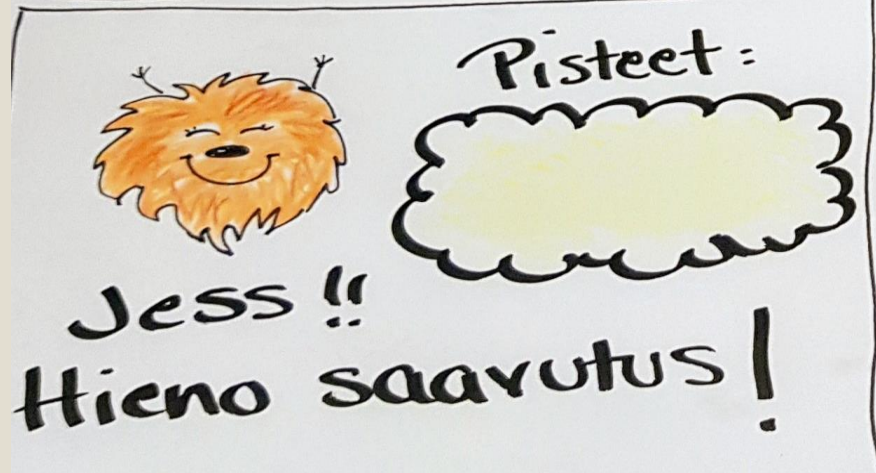 Pisteet:
Jess!!
Hieno saavutus!